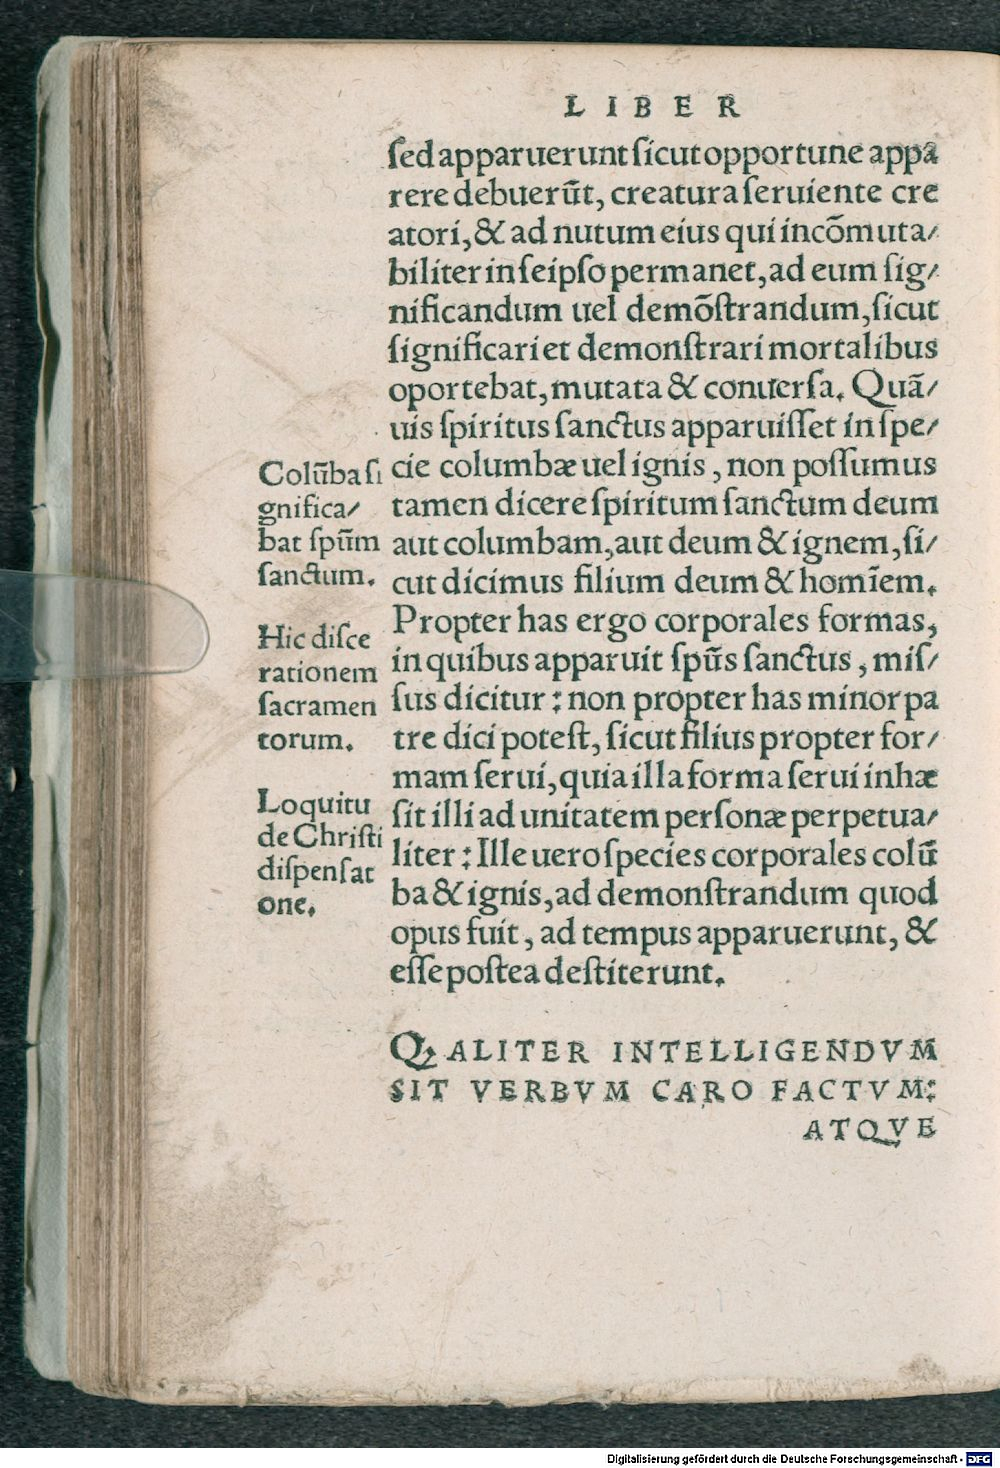 LIBER
ſed apparuerunt ſicut opportune appa
rere debuerūt, creatura ſeruiente cre
atori, & ad nutum eius qui incōmuta/
biliter in ſeipſo permanet, ad eum ſig/
nificandum uel demōſtrandum, ſicut
ſignificari et demonſtrari mortalibus
oportebat, mutata & conuerſa. Quā/
uis ſpiritus ſanctus apparuiſſet in ſpe/
cie columbæ uel ignis, non poſſumus
tamen dicere ſpiritum ſanctum deum
aut columbam, aut deum & ignem, ſi/
cut dicimus filium deum & homīem.
Propter has ergo corporales formas,
in quibus apparuit ſpūs ſanctus, miſ/
ſus dicitur: non propter has minor pa
tre dici poteſt, ſicut filius propter for/
mam ſerui, quia illa forma ſerui inhæ
ſit illi ad unitatem perſonæ perpetua/
liter: Ille uero ſpecies corporales colū
ba & ignis, ad demonſtrandum quod
opus fuit, ad tempus apparuerunt, &
eſſe poſtea deſtiterunt.
Colūba ſi
gnifica/
bat ſpūm
ſanctum.
Hic diſce
rationem
ſacramen
torum.
Loquitu
de Chriſti
diſpenſat
one.
QVALITER INTELLIGENDVM
SIT VERBVM CARO FACTVM:
ATQVE
Digitalisierung gefördert durch die Deutsche Forschungsgemeinschaft - DFG